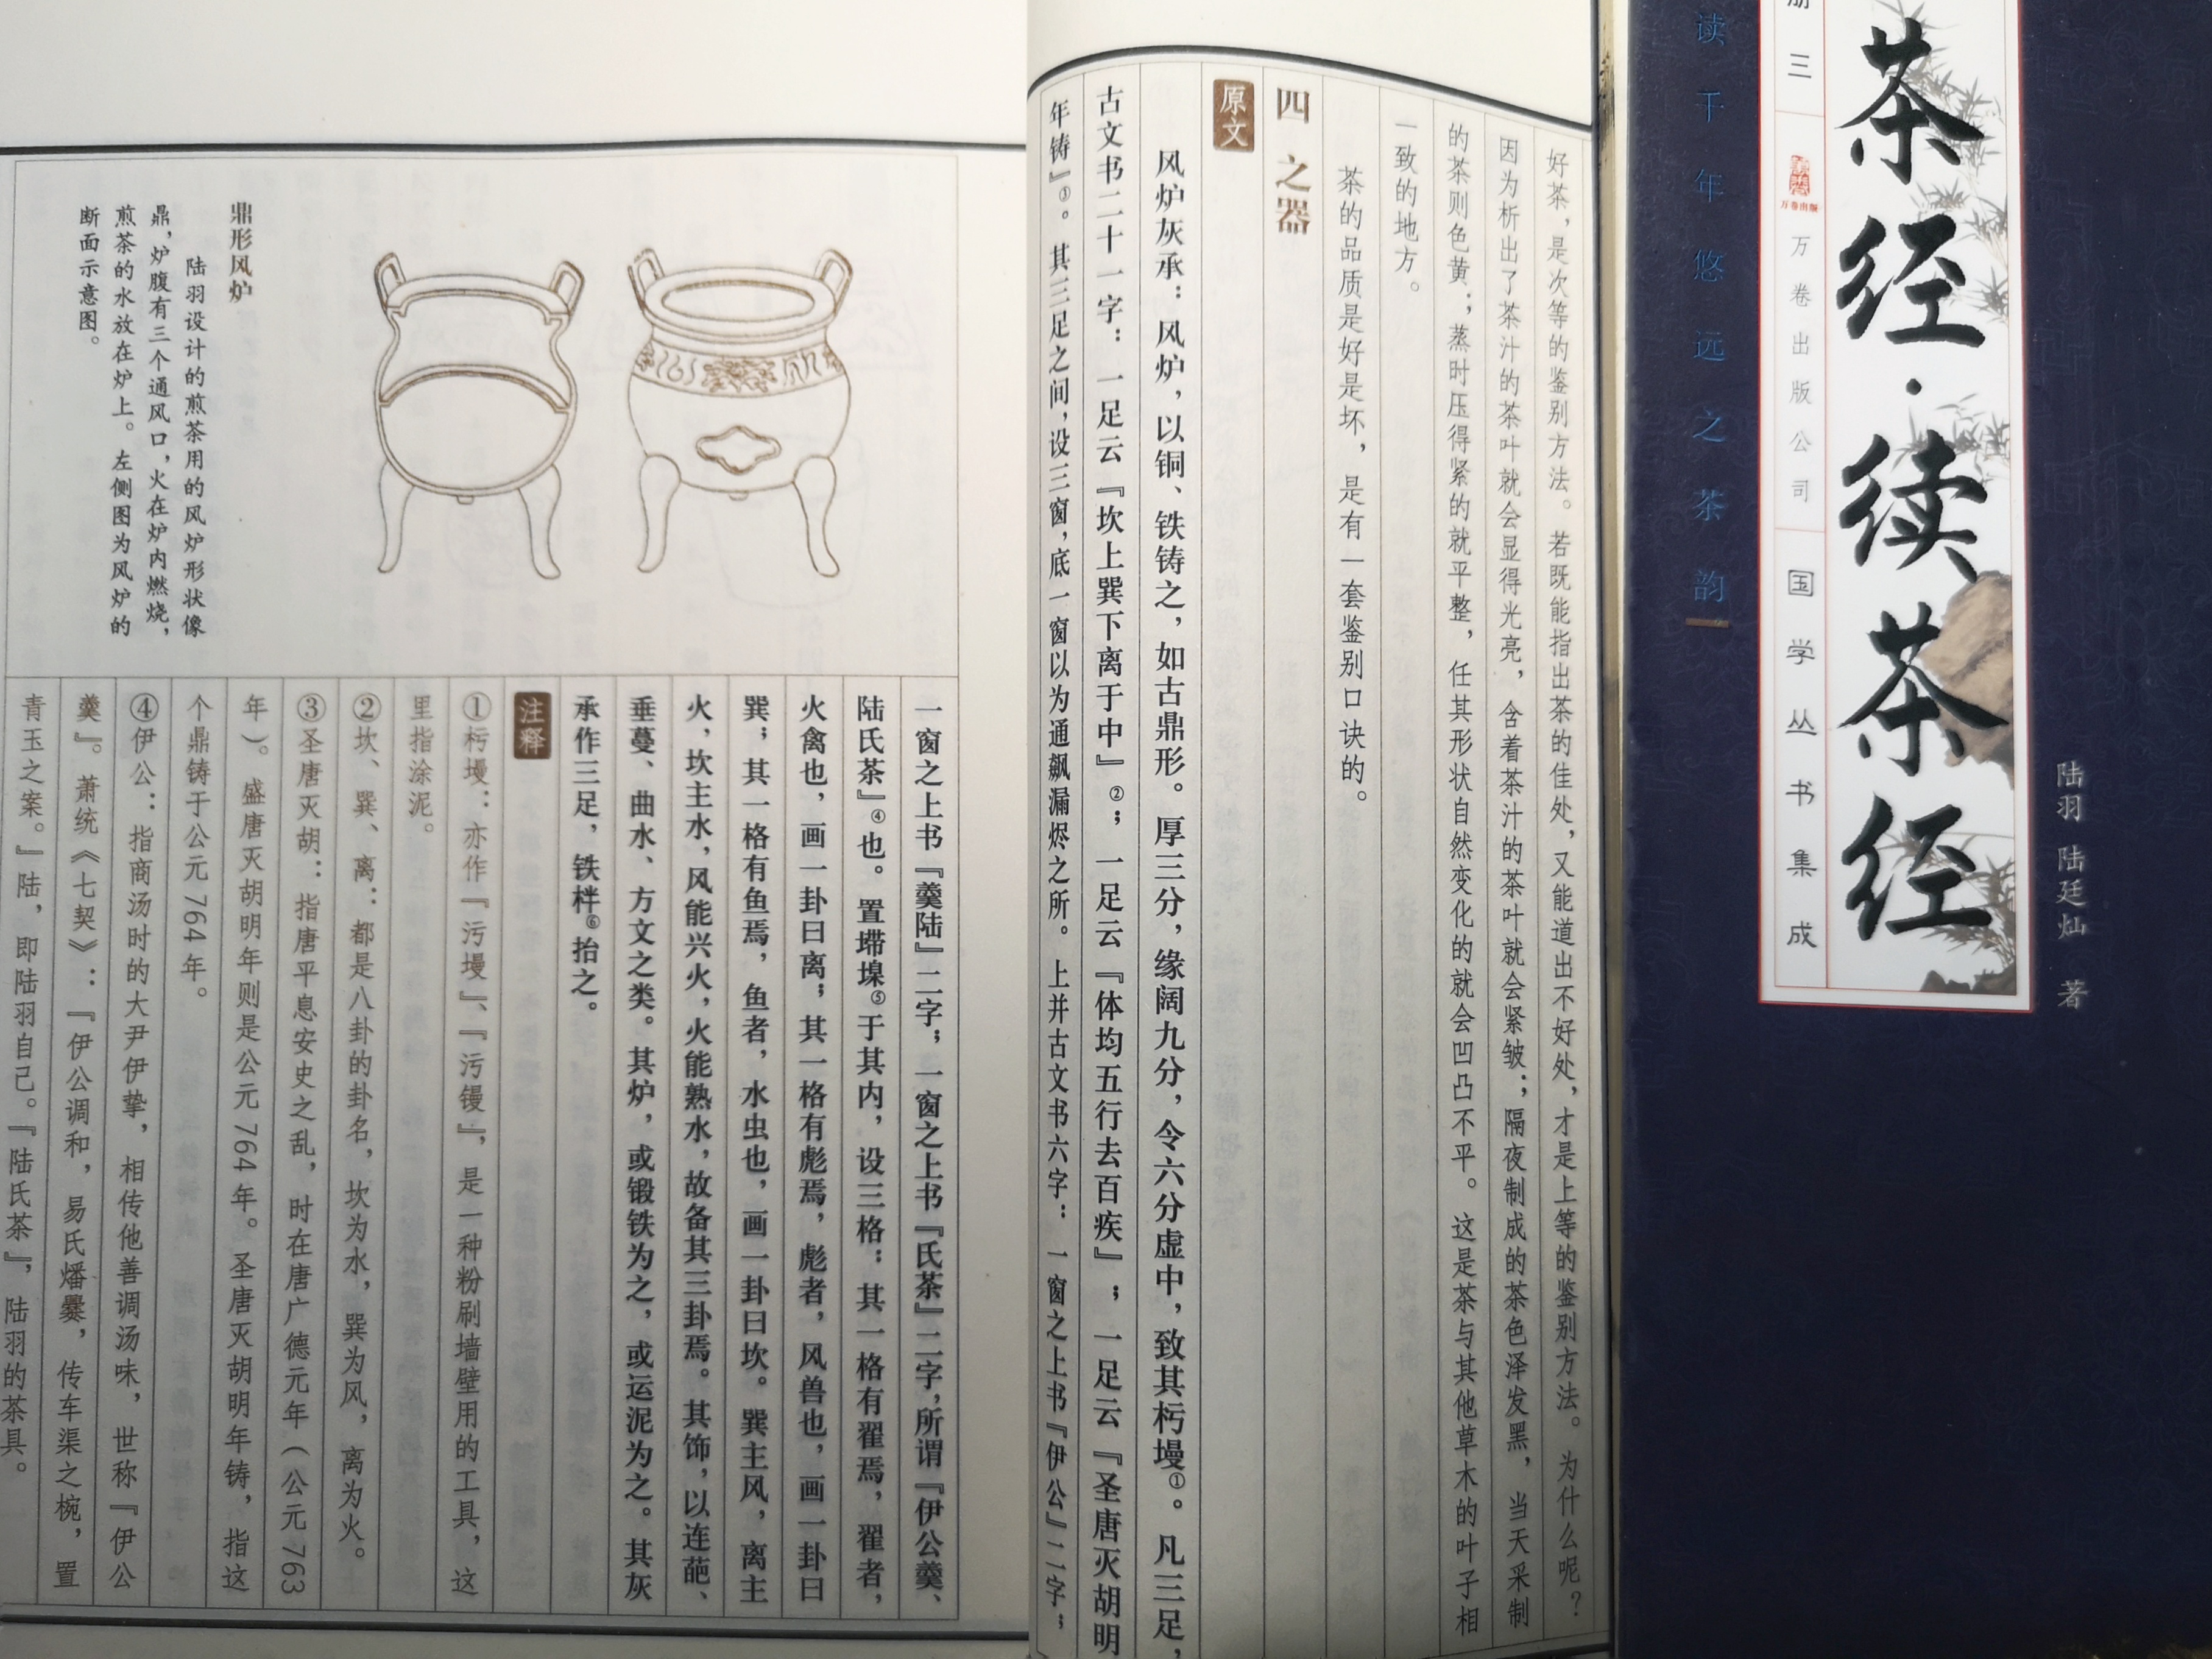 册三
万卷出版
万卷出版公司
国学丛书集成
茶经·续茶经
陆羽 陆廷灿 著
读千年悠远之茶韵
好茶，是次等的鉴别方法。若既能指出茶的佳处，又能道出不好处，才是上等的鉴别方法。为什么呢？
因为析出了茶汁的茶叶就会显得光亮，含着茶汁的茶叶就会紧皱；隔夜制成的茶色泽发黑，当天采制
的茶则色黄；蒸时压得紧的就平整，任其形状自然变化的就会凹凸不平。这是茶与其他草木的叶子相
一致的地方。
茶的品质是好是坏，是有一套鉴别口诀的。
四 之器
原文
风炉灰承：风炉，以铜、铁铸之，如古鼎形。厚三分，缘阔九分，令六分虚中，致其杇墁①。凡三足，
古文书二十一字：一足云『坎上巽下离于中』②；一足云『体均五行去百疾』；一足云『圣唐灭胡明
年铸』③。其三足之间，设三窗，底一窗以为通飙漏烬之所。上并古文书六字：一窗之上书『伊公』二字；
一窗之上书『羹陆』二字；一窗之上书『氏茶』二字，所谓『伊公羹、
陆氏茶』④也。置墆㙞⑤于其内，设三格：其一格有翟焉，翟者，
火禽也，画一卦曰离；其一格有彪焉，彪者，风兽也，画一卦曰
巽；其一格有鱼焉，鱼者，水虫也，画一卦曰坎。巽主风，离主
火，坎主水，风能兴火，火能熟水，故备其三卦焉。其饰，以连葩、
垂蔓、曲水、方文之类。其炉，或锻铁为之，或运泥为之。其灰
承作三足，铁柈⑥抬之。
注释
①杇墁：亦作『污墁』、『污镘』，是一种粉刷墙壁用的工具，这
里指涂泥。
②坎、巽、离：都是八卦的卦名，坎为水，巽为风，离为火。
③圣唐灭胡：指唐平息安史之乱，时在唐广德元年（公元763
年）。盛唐灭胡明年则是公元764年。圣唐灭胡明年铸，指这
个鼎铸于公元764年。
④伊公：指商汤时的大尹伊挚，相传他善调汤味，世称『伊公
羹』。萧统《七契》：『伊公调和，易氏燔爨，传车渠之椀，置
青玉之案。』陆，即陆羽自己。『陆氏茶』，陆羽的茶具。
鼎形风炉
陆羽设计的煎茶用的风炉形状像
鼎，炉腹有三个通风口，火在炉内燃烧，
煎茶的水放在炉上。左侧图为风炉的
断面示意图。